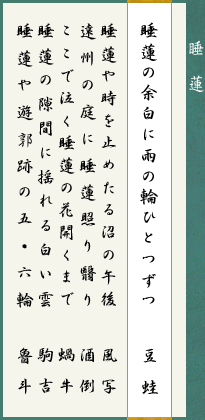 睡蓮
睡蓮の余白に雨の輪ひとつずつ 豆蛙
睡蓮や時を止めたる沼の午後 風写
遠州の庭に睡蓮照り翳り 酒倒
ここで泣く睡蓮の花開くまで 蝸牛
睡蓮の隙間に揺れる白い雲 駒吉
睡蓮や遊郭跡の五・六輪 魯斗